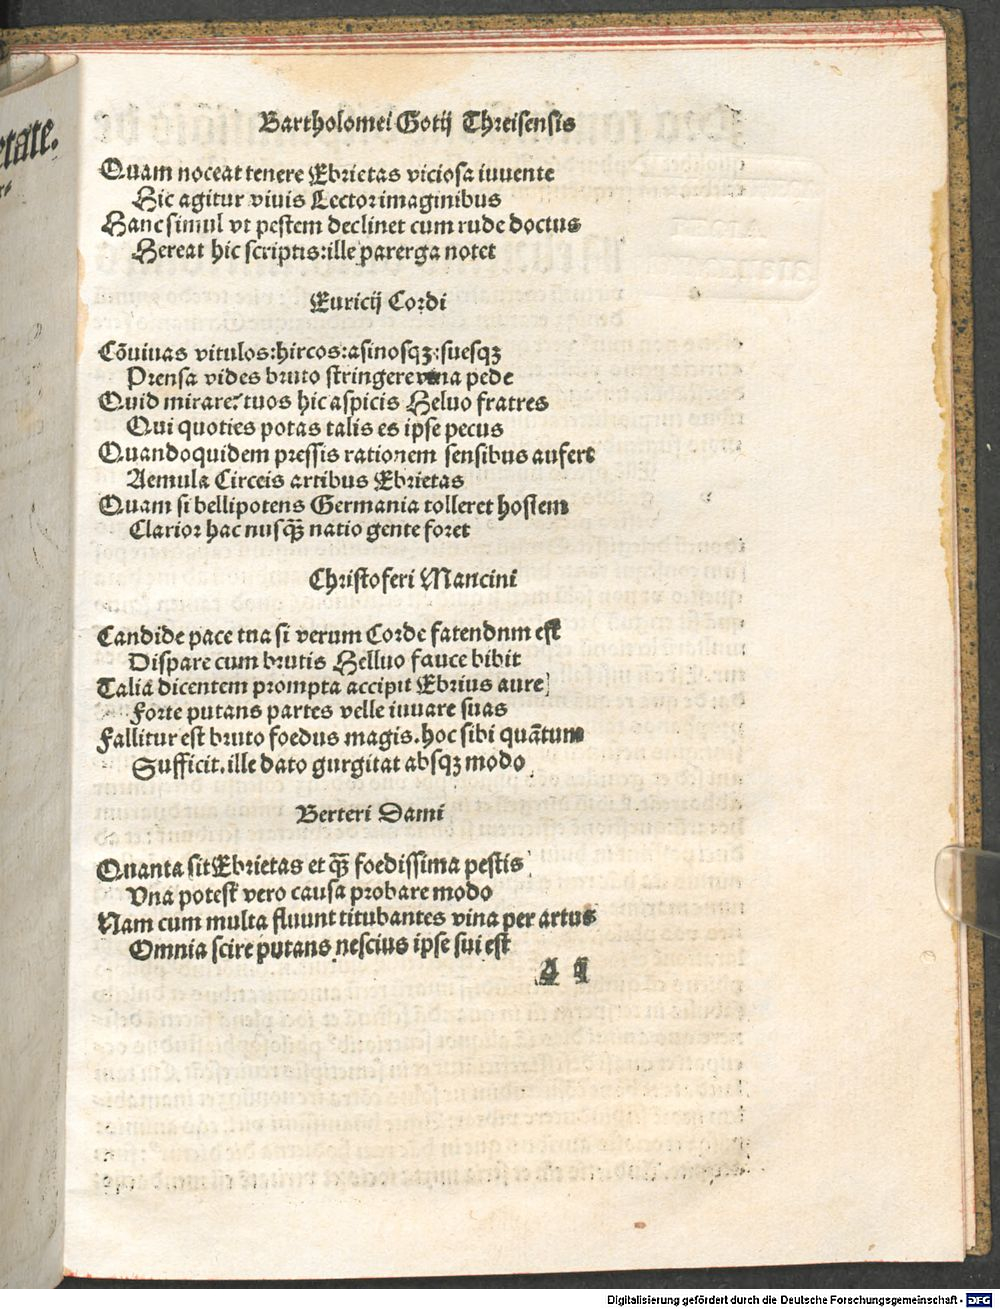 etate.
Bartholomei Gotij Threisensis
Quam noceat tenere Ebrietas viciosa iuuente
Hic agitur viuis Lector imaginibus
Hanc simul vt pestem declinet cum rude doctus
Hereat hic scriptis: ille parerga notet
Euricij Cordi
Cõuiuas vitulos: hircos: asinosqꝫ: suesqꝫ
Prensa vides bruto stringere vina pede
Quid mirare? tuos hic aspicis Heluo fratres
Qui quoties potas talis es ipse pecus
Quandoquidem pressis rationem sensibus aufert
Aemula Circeis artibus Ebrietas
Quam si bellipotens Germania tolleret hostem
Clarior hac nusq̃ natio gente foret
Christoferi Mancini
Candide pace tua si verum Corde fatendnm est
Dispare cum brutis Helluo fauce bibit
Talia dicentem prompta accipit Ebrius aure
Forte putans partes velle iuuare suas
Fallitur est bruto foedus magis. hoc sibi quãtum
Sufficit. ille dato gurgitat absqꝫ modo
Berteri Dami
Quanta sit Ebrietas et q̃ foedissima pestis
Vna potest vero causa probare modo
Nam cum multa fluunt titubantes vina per artus
Omnia scire putans nescius ipse sui est
Digitalisierung gefördert durch die Deutsche Forschungsgemeinschaft - DFG